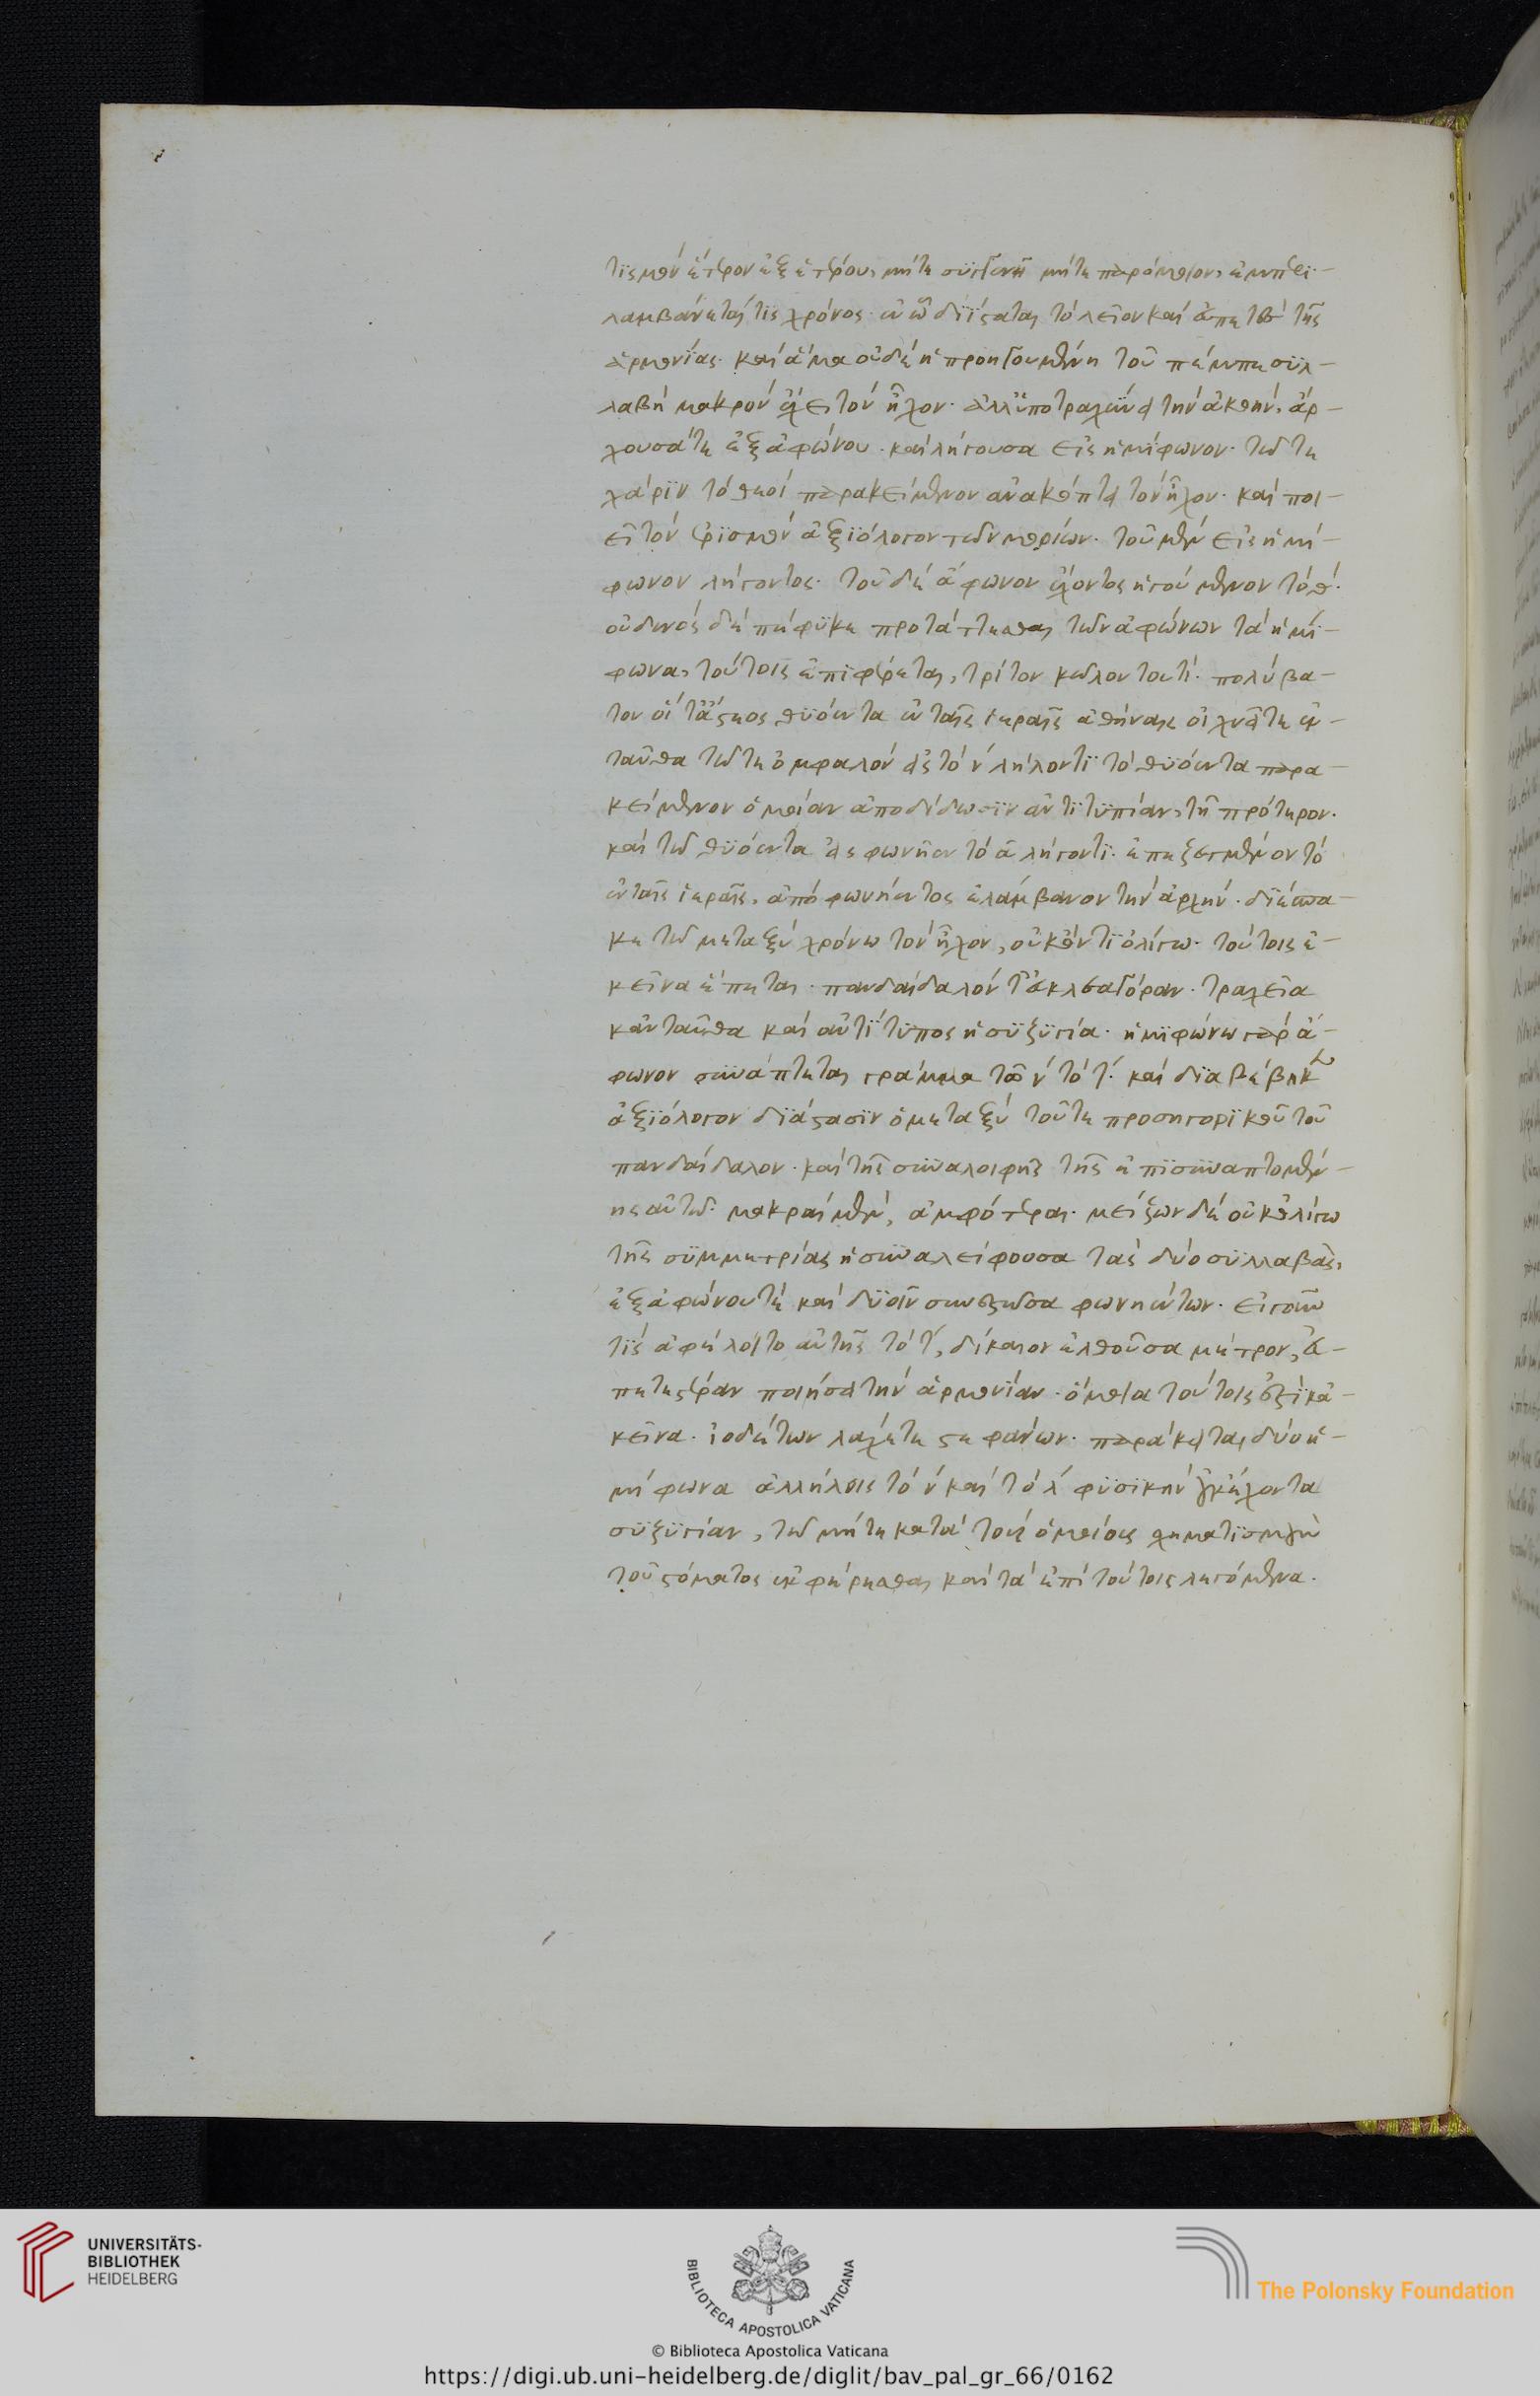 τις μὲν ἕτερον ἐξ ἑτέρου, μήτε συγγενῆ μήτε παρόμοιον, ἐμπερι-
λαμβάνεται τις χρόνος· ἐν ᾧ διίσταται τὸ λεῖον καὶ εὐπετὲς τῆς
ἁρμονίας. καὶ ἅμα οὐδὲ ἡ προηγουμένη τοῦ πέμπετε συλ-
λαβὴ μακρὸν ἔχει τὸν ἦχον· ἀλλ' ὑποτραχύνει τὴν ἀκοήν, ἄρ-
χουσά τε ἐξ ἀφώνου· καὶ λήγουσα εἰς ἡμίφωνον· τῷ τε
χάριν τὸ θεοὶ παρακείμενον ἀνακόπτει τὸν ἦχον· καὶ ποι-
εῖ τὸν ἐρισμὸν ἀξιόλογον τῶν μορίων· τοῦ μὲν εἰς ἡμί-
φωνον λήγοντος· τοῦ δὲ ἄφωνον ἔχοντος ἡγούμενον τὸ θ·
οὐδενὸς δὲ πέφυκε προτάττεσθαι τῶν ἀφώνων τὰ ἡμί-
φωνα, τούτοις ἐπιφέρεται, τρίτον κῶλον τουτί· πολύβα-
τον οἵ τ' ἄστεος θυόεντα ἐν ταῖς ἱεραῖς ἀθήναις οἰχνεῖτε ἐν-
ταῦθα τῷ τε ὀμφαλὸν εἰς τὸ ν λήγοντι τὸ θυόεντα παρα-
κείμενον ὁμοίαν ἀποδίδωσιν ἀντιτυπίαν, τῇ πρότερον·
καὶ τῷ θυόεντα εἰς φωνῆεν τὸ α λήγοντι· ἐπεζευγμένον τὸ
ἐν ταῖς ἱεραῖς, ἀπὸ φωνήεντος ἐλάμβανον τὴν ἀρχήν· διέσπα-
κε τῷ μεταξὺ χρόνω τὸν ἦχον, οὐκ ὄντι ὀλίγω· τούτοις ἐ-
κεῖνα ἕπεται· πανδαίδαλόν τ' εὐκλεαγόραν· τραχεῖα
κἀνταῦθα καὶ ἀντίτυπος ἡ συζυγία· ἡμιφώνω γὰρ ἄ-
φωνον συνάπτεται γράμμα τῷ ν τὸ τ· καὶ διαβέβηκεν
ἀξιόλογον διάστασιν ὁ μεταξὺ τοῦ τε προσηγορικοῦ τοῦ
πανδαίδαλον· καὶ τῆς συναλοιφῆς τῆς ἐπισυναπτομέν-
ης αὐτῷ· μακραὶ μὲν, ἀμφότεραι· μείζων δὲ οὐκ ὀλίγω
τῆς συμμετρίας ἡ συναλείφουσα τὰς δύο συλλαβὰς,
ἐξ ἀφώνου τὲ καὶ δυοῖν συνεστῶσα φωνηέντων· εἰ γοῦν
τὶς ἀφέλοιτο αὐτῆς τὸ τ, δίκαιον ἐλθοῦσα μέτρον, εὐ-
πετεστέραν ποιήσει τὴν ἁρμονίαν· ὅμοια τούτοις ἐστὶ κἀ-
κεῖνα· ἰοδέτων λάχετε στεφάνων· παράκειται δύο ἡ-
μίφωνα ἀλλήλοις τὸ ν καὶ τὸ λ φυσικὴν οὐκ ἔχοντα
συζυγίαν, τῷ μήτε κατὰ τοὺς ὁμοίους σχηματισμοὺς
τοῦ στόματος ἐκφέρεσθαι καὶ τὰ ἐπὶ τούτοις λεγόμενα.
UNIVERSITÄTS-
BIBLIOTHEK
HEIDELBERG
BIBLIOTECA APOSTOLICA VATICANA
The Polonsky Foundation
© Biblioteca Apostolica Vaticana
https://digi.ub.uni-heidelberg.de/diglit/bav_pal_gr_66/0162